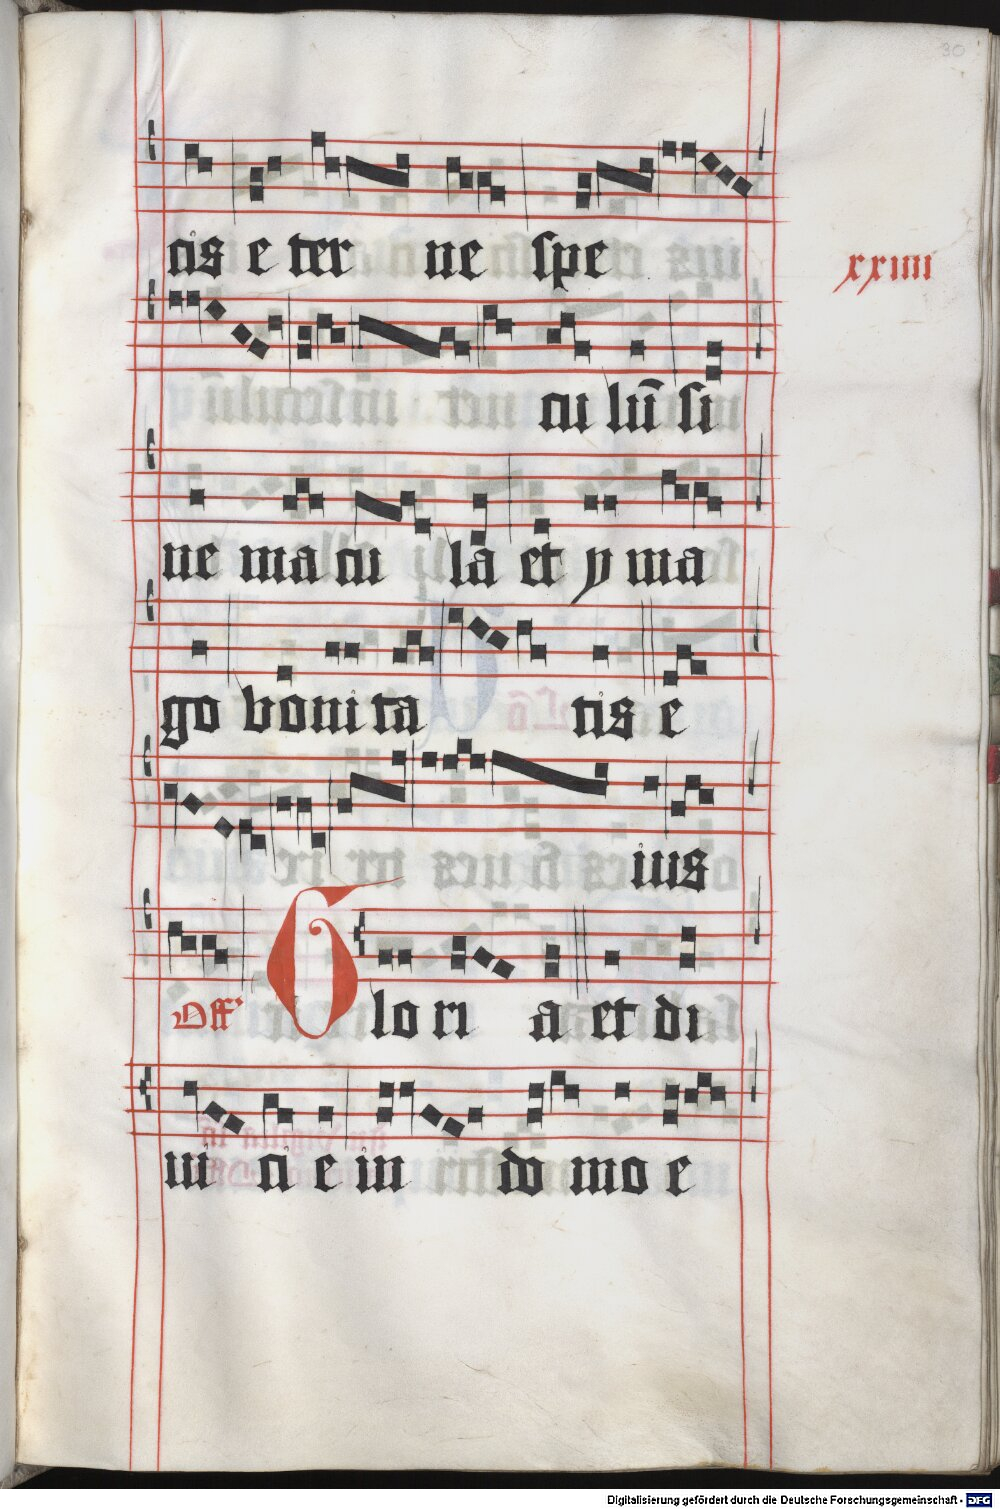 30
cis e ter ne spe
xxiiii
cu lū si
ne ma cu la et y ma
go boni ta tis e
ius
Off Glo ri a et di
ui ci e in do mo e
Digitalisierung gefördert durch die Deutsche Forschungsgemeinschaft - DFG